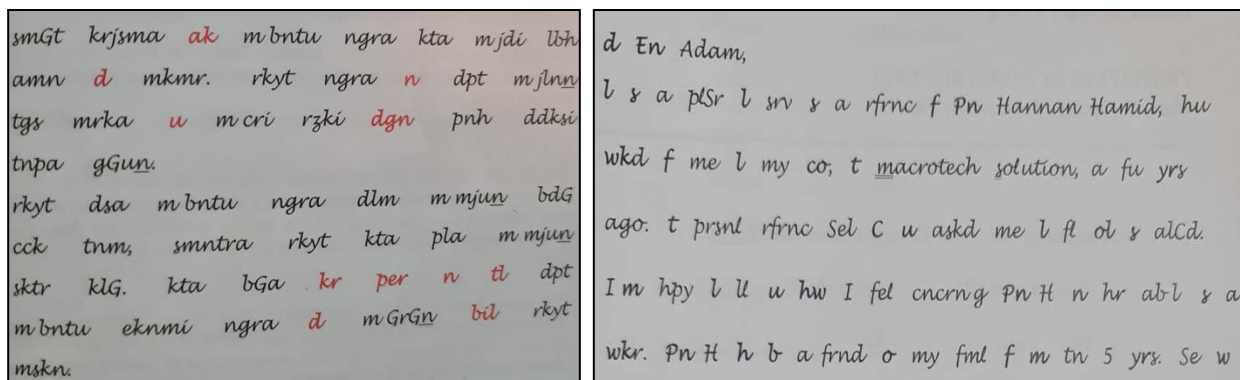 smGt krjsma ak m bntu ngra kta m jdi lbh
amn d mkmr. rkyt ngra n dpt m jlnn
tgs mrka u m cri rzki dgn pnh ddksi
tnpa gGun.
rkyt dsa m bntu ngra dlm m mjun bdG
cck tnm, smntra rkyt kta pla m mjun
sktr klG. kta bGa kr per n tl dpt
m bntu eknmi ngra d m GrGn bil rkyt
mskn.
d En Adam,
l s a plSr l srv s a rfrnc f Pn Hannan Hamid, hu
wkd f me l my co, t macrotech solution, a fu yrs
ago. t prsnl rfrnc Sel C u askd me l fl ol s alCd.
I m hpy l ll u hw I fel cncrng Pn H n hr ab-l s a
wkr. Pn H h b a frnd o my fml f m tn 5 yrs. Se w